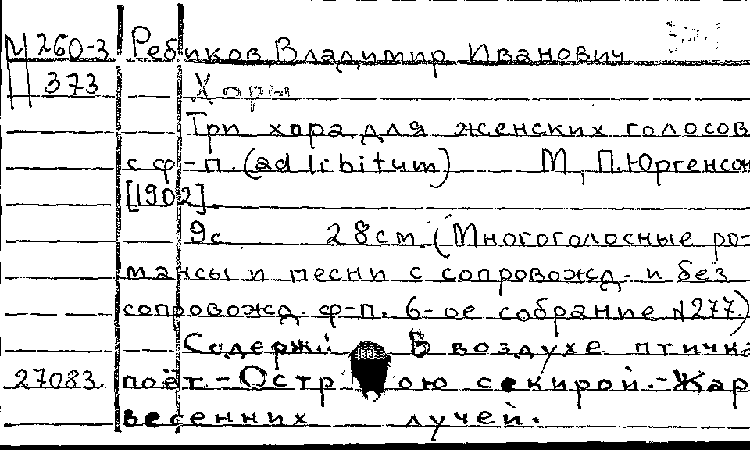 М 260-3 Ребиков, Владимир Иванович
П 373 Хоры
Три хора для женских голосов
с ф-п. (ad libitum) М., П. Юргенсон
[1902].
9с 28см. (Многоголосные ро-
мансы и песни с сопровожд. и без
сопровожд. ф-п. 6-ое собрание №277.)
В воздухе птичка
27083 поёт.-
секирой.-Жар
весенних лучей.